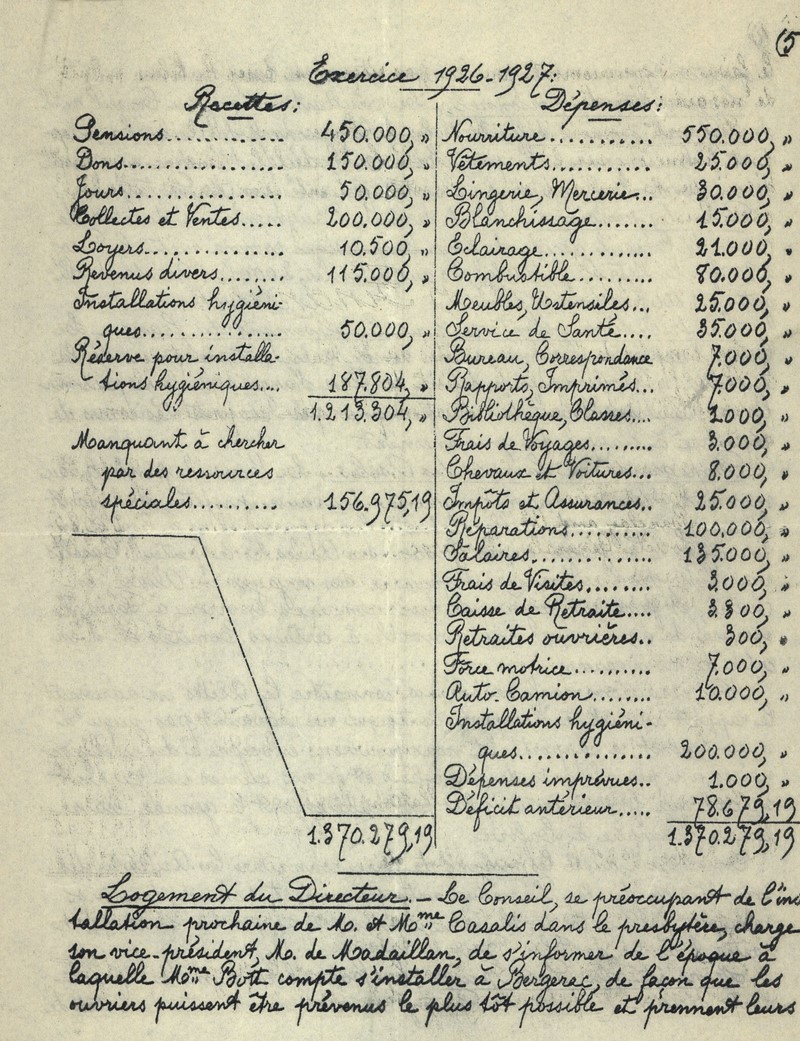 (5
Exercice 1926-1927:
Recettes:
Pensions.............. 450.000, "
Dons.................. 150.000, "
Jours................. 50.000, "
Collectes et Ventes..... 200.000, "
Loyers................ 10.500, "
Revenus divers........ 115.000, "
Installations hygiéni-
ques.................. 50.000, "
Réserve pour installa-
tions hygiéniques.... 187.804, "
1.213.304, "
Manquant à chercher
par des ressources
spéciales........... 156.975,19
1.370.279,19
Dépenses:
Nourriture........... 550.000, "
Vêtements........... 25.000, "
Lingerie, Mercerie... 30.000, "
Blanchissage....... 15.000, "
Eclairage............ 21.000, "
Combustible......... 80.000, "
Meubles, Ustensiles... 25.000, "
Service de Santé.... 35.000, "
Bureau, Correspondance 7.000, "
Rapports, Imprimés... 7.000, "
Bibliothèque, Classes.... 1.000, "
Frais de Voyages........ 3.000, "
Chevaux et Voitures... 8.000, "
Impôts et Assurances.. 25.000, "
Réparations.......... 100.000, "
Salaires............. 135.000, "
Frais de Visites........ 3.000, "
Caisse de Retraite.... 3.300, "
Retraites ouvrières.. 300, "
Force motrice.......... 7.000, "
Auto-Camion........ 10.000, "
Installations hygiéni-
ques............... 200.000, "
Dépenses imprévues.. 1.000, "
Déficit antérieur..... 78.679,19
1.370.279,19
Logement du Directeur. – Le Conseil, se préoccupant de l'ins
tallation prochaine de M. et Mme Casalis dans le presbytère, charge
son vice-président, M. de Madaillan, de s'informer de l'époque à
laquelle Mme Bott compte s'installer à Bergerac, de façon que les
ouvriers puissent être prévenus le plus tôt possible et prennent leurs